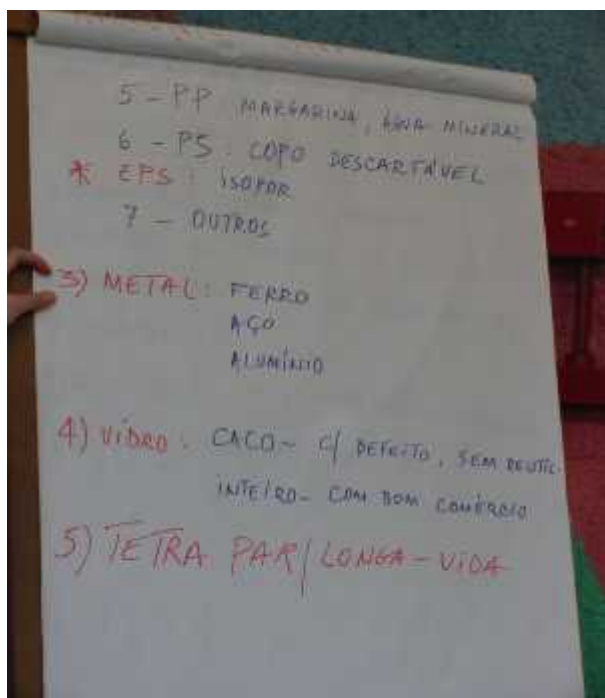 5 - PP MARGARINA, ÁGUA MINERAL
6 - PS: COPO DESCARTÁVEL
* EPS: ISOPOR
7 - OUTROS
3) METAL: FERRO
AÇO
ALUMÍNIO
4) VIDRO: CACO - C/ DEFEITO, SEM REUTIL.
INTEIRO - COM BOM COMÉRCIO
5) TETRA PAR/LONGA-VIDA